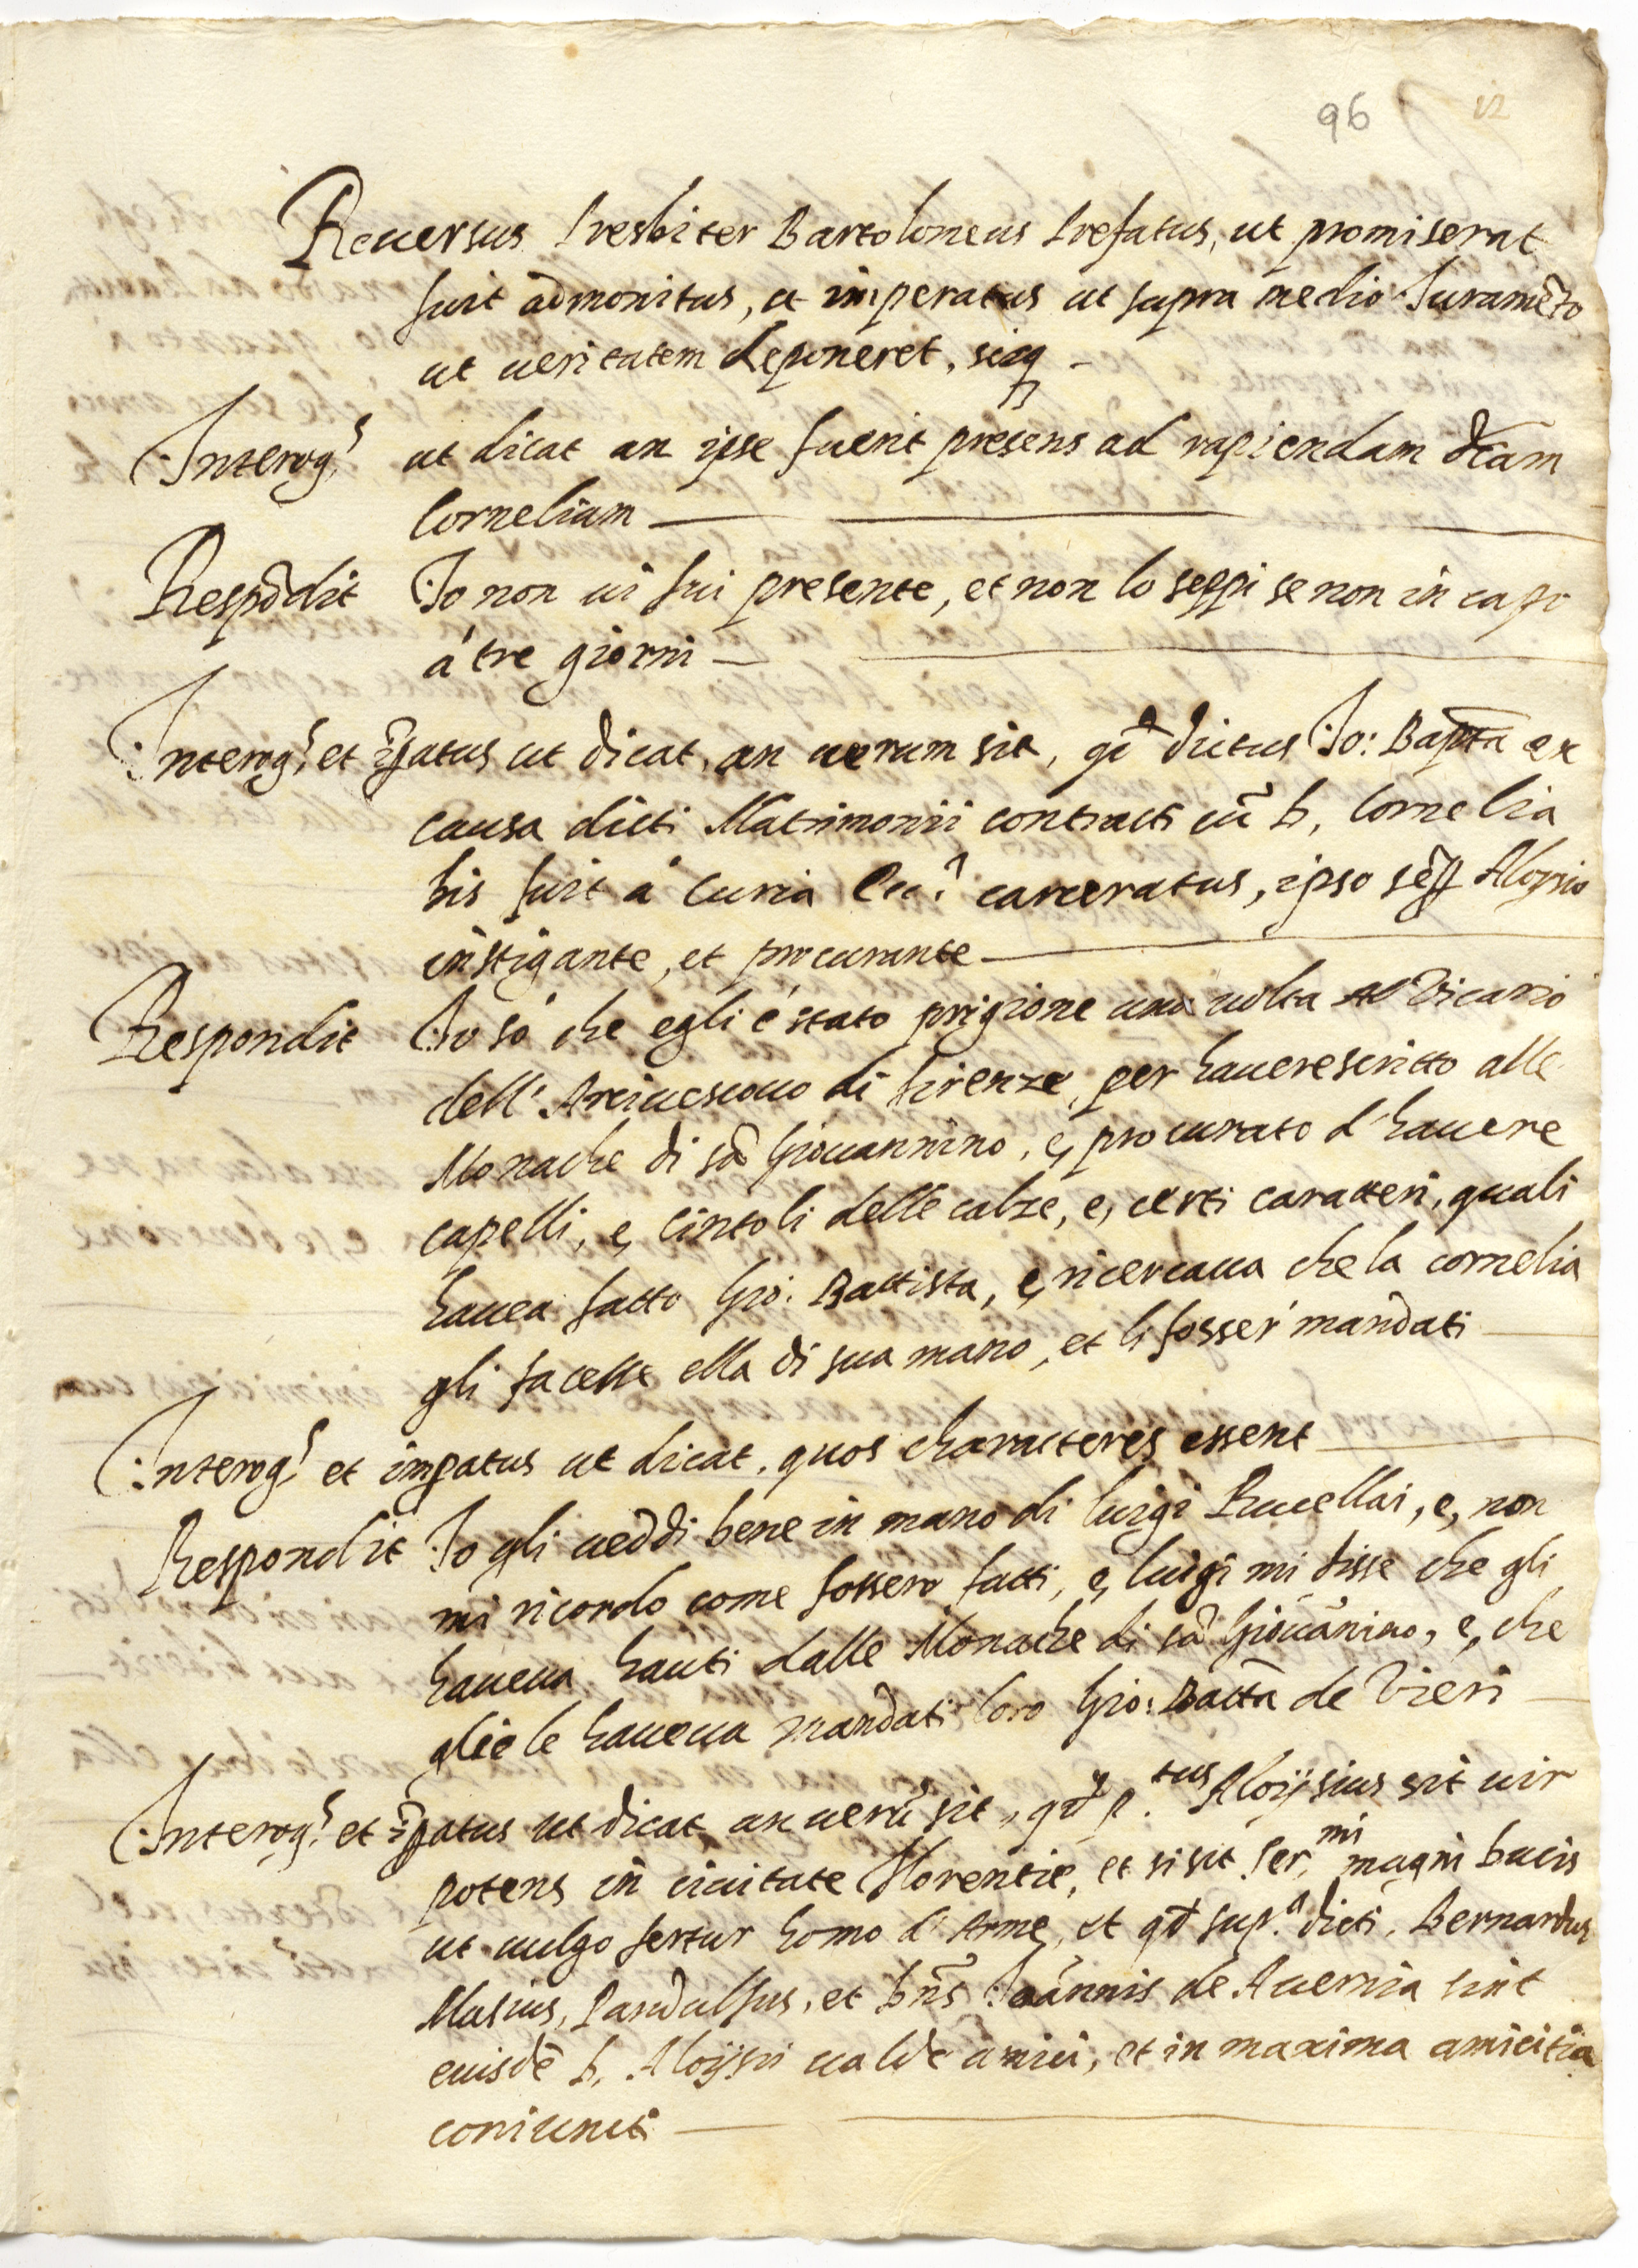 96
Reuersus Presbiter Bartolomeus Prefatus, ut promiserat
fuit admonitus, et imperatus ut supra medio Juramẽto
ut ueritatem deponeret, sicq̃
Interogˢ. ut dicat an ipse fuerit presens ad rapiendam dc̃am
Corneliam
Respõdit Io non ui fui presente, et non lo seppi se non in capo
à tre giorni
Interogˢ. et ĩpatus ut dicat, an uerum sit, qđ dictus Jo: Bapt̃a ex
causa dicti Matrimonii contracti cũ D. Cornelia
bis fuit à Curia carceratus, ipso semp̃ Aloysio
instigante, et procurante
Respondit Io sò che egli è stato prigione una uolta al Vicario
dell'Arciuescouo di Firenze, per hauere scritto alle
Monache di sã Giouannino, e, procurato d'hauere
capelli, e, Cintoli delle calze, e, certi caratteri, quali
hauea fatto Gio. Battista, e, ricercaua che la cornelia
gli facesse ella di sua mano, et li fosser mandati
Interogˢ. et imp̃atus ut dicat, quos characteres essent
Respondit Io gli ueddi bene in mano di luigi Rucellai, e, non
mi ricordo come fossero fatti, e, luigi mi disse che gli
haueua hauti dalle Monache di sã Giouãnino, e, che
glie le haueua mandati loro Gio: Batt̃a de Vieri
Interogˢ. et ĩpatus ut dicat, an uerũ sit, qđ p.tus Aloijsius sit uir
potens in ciuitate Florentie, et si sit Ser.mi magni Ducis
ut uulgo fertur homo d'Arme, et qđ sup.ª dicti, Bernardus
Masius, Pandulfus, et Dñs Joãnnis de Auernia sint
eiusdẽ D. Aloijsii ualde amici, et in maxima amicitia
coniuncti